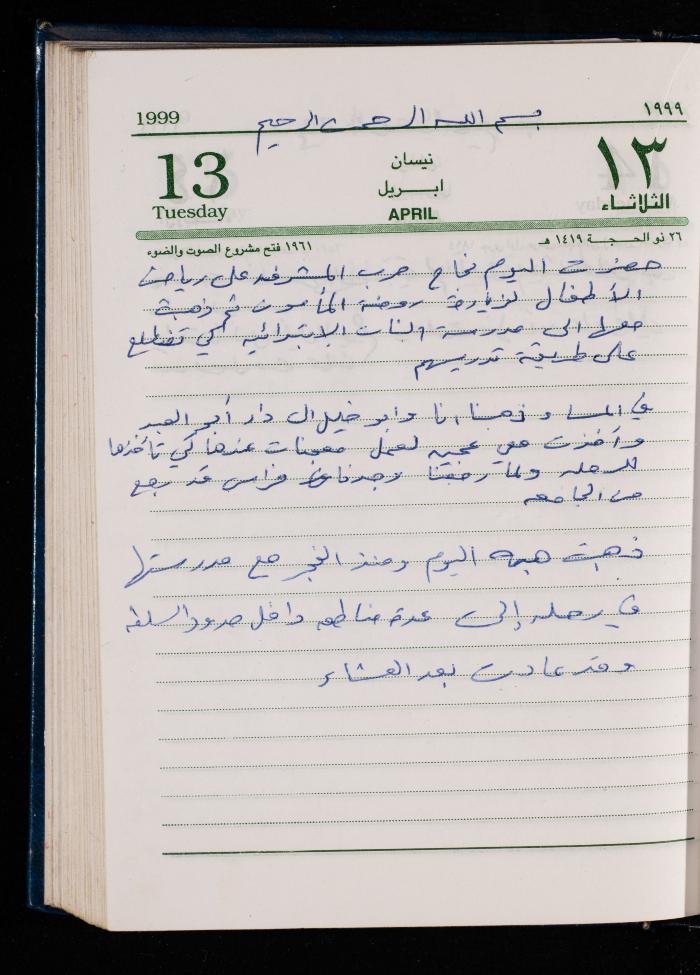 1999
١٩٩٩
بسم الله الرحمن الرحيم
13
Tuesday
نيسان
ابريل
APRIL
١٣
الثلاثاء
٢٦ ذو الحجة ١٤١٩ هـ
١٩٦١ فتح مشروع الصوت والضوء
حضرت اليوم نجاح حرب المشرفه على رياض
الأطفال لزيارة روضة المأمون ثم ذهبت
معها الى مدرسة البنات الإبتدائيه كي تطلع
على طريقة تدريسهم
في المساء ذهبنا انا وابو خليل الى دار أبو العبد
وأخذت معي عجين لعمل معجنات عندها كي تأخذها
للرحله ولما رجعنا وجدنا فراس قد رجع
من الجامعه
ذهبت هبه اليوم ومنذ الفجر مع مدرستها
في رحله إلى عدة مناطق داخل حدود السلطه
وقد عادت بعد العشاء